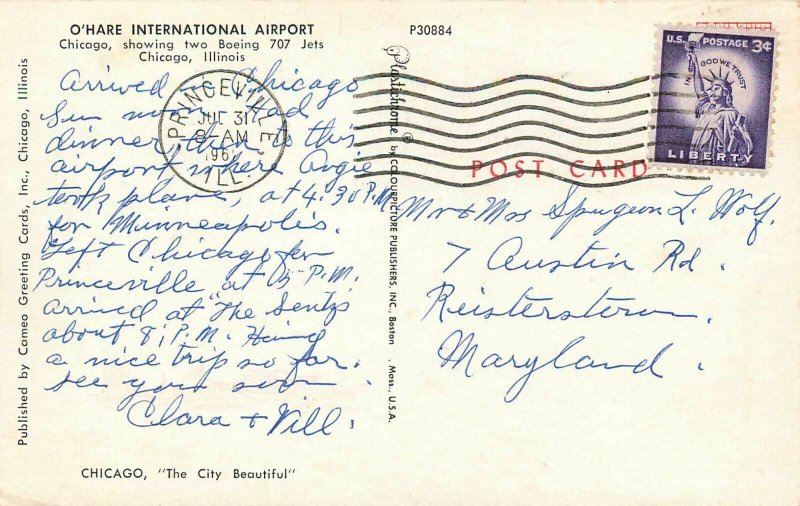 O'HARE INTERNATIONAL AIRPORT
Chicago, showing two Boeing 707 Jets
Chicago, Illinois
P30884
Arrived in Chicago
Sun
dinner then to this
airport where Angie
took plane, at 4:30 P.M.
for Minneapolis.
Left Chicago for
Princeville at 5 P.M.
arrived at "The Sentz's
about 8, P.M. Having
a nice trip so far.
see you soon
Clara + Will.
CHICAGO, "The City Beautiful"
Published by Cameo Greeting Cards, Inc., Chicago, Illinois
Plastichrome ® by COLOURPICTURE PUBLISHERS, INC., Boston, Mass., U.S.A.
PRINCEVILLE
JUL 31
8 AM
196
ILL
U.S. POSTAGE 3¢
IN GOD WE TRUST
LIBERTY
POST CARD
Mr + Mrs Spurgeon L. Wolf.
7 Austin Rd.
Reisterstown.
Maryland.